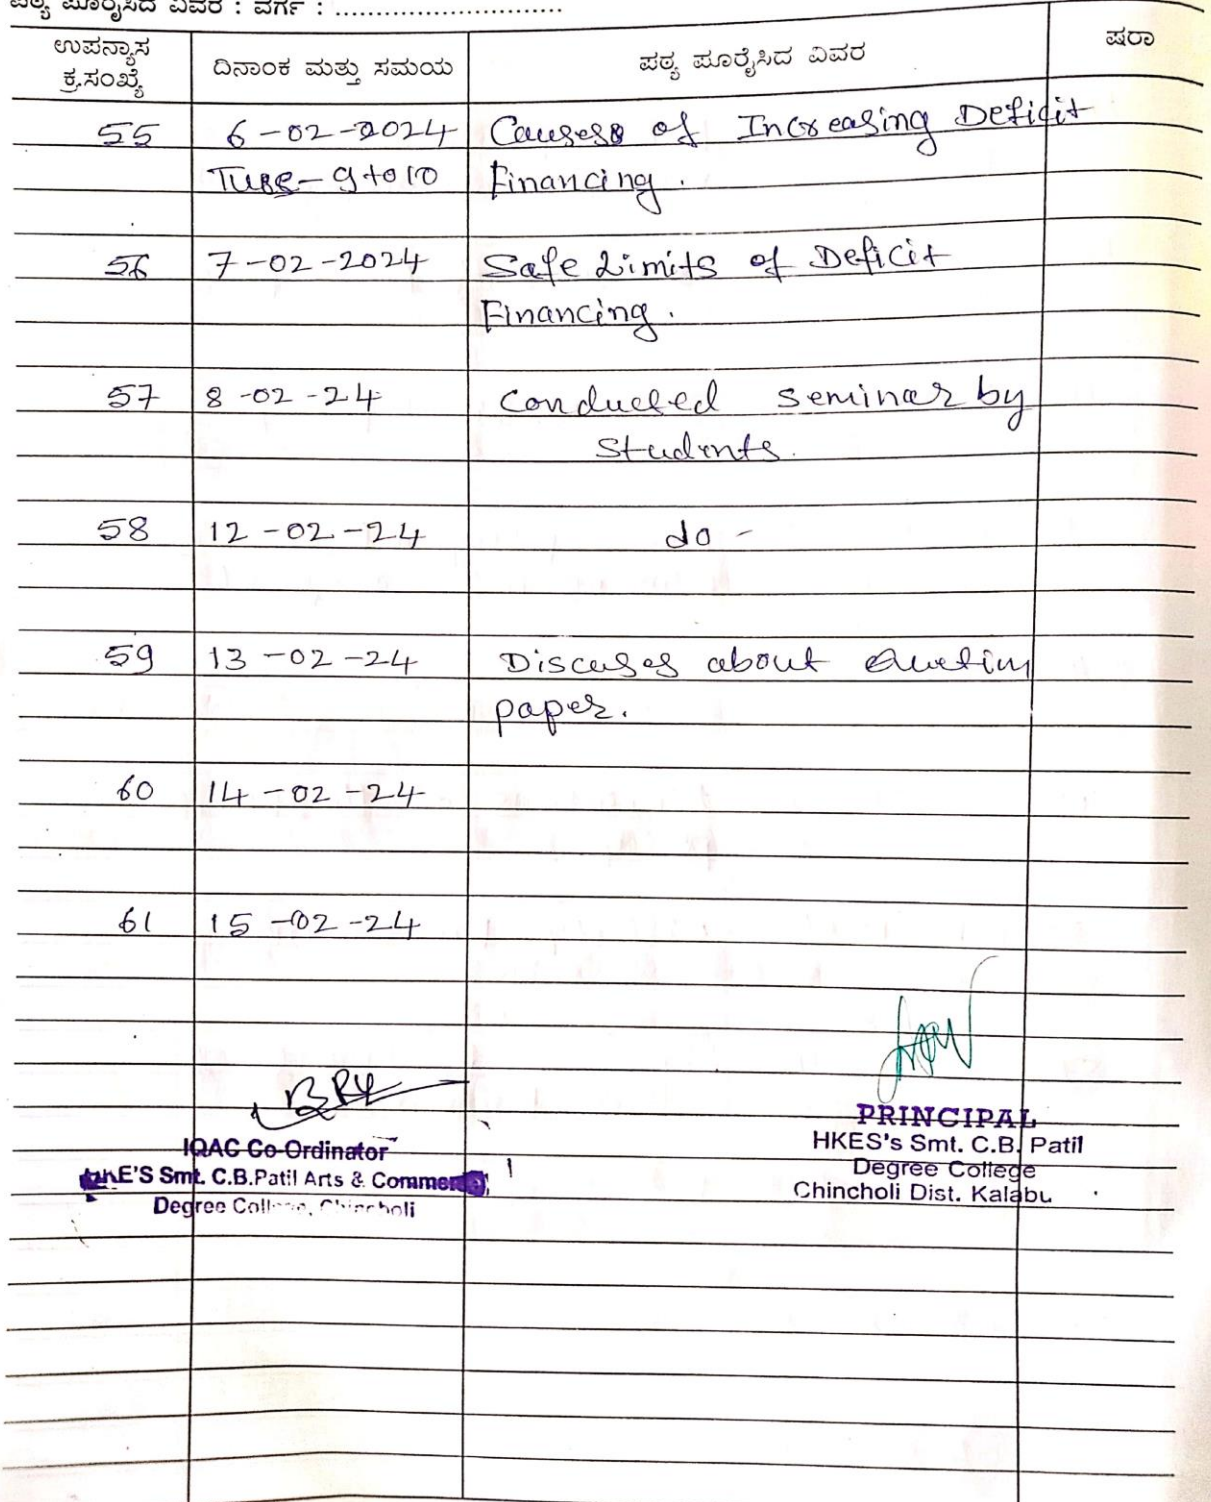 ಪಠ್ಯ ಪೂರೈಸಿದ ವಿವರ : ವರ್ಗ : ............................
ಉಪನ್ಯಾಸ ಕ್ರ.ಸಂಖ್ಯೆ ದಿನಾಂಕ ಮತ್ತು ಸಮಯ ಪಠ್ಯ ಪೂರೈಸಿದ ವಿವರ ಷರಾ
55 6-02-2024 Causess of Increasing Deficit
Tuse-9 to 10 Financing.
56 7-02-2024 Safe Limits of Deficit
Financing.
57 8-02-24 Conducted seminar by
Students.
58 12-02-24 do -
59 13-02-24 Discuses about
paper.
60 14-02-24
61 15-02-24
IQAC Co-Ordinator
HKE'S Smt. C.B.Patil Arts & Commerce
Degree College, Chincholi
PRINCIPAL
HKES's Smt. C.B. Patil
Degree College
Chincholi Dist. Kalabu